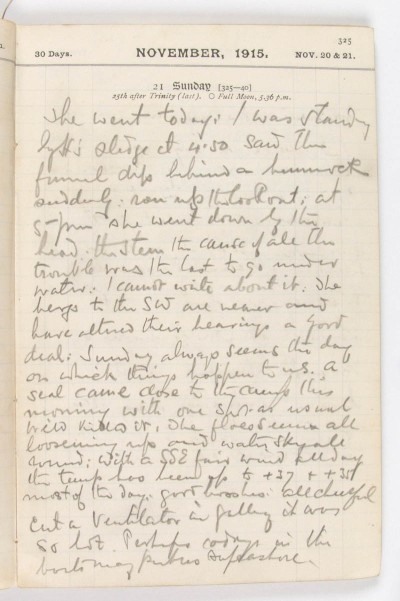 323
30 Days. NOVEMBER, 1915. NOV. 20 & 21.
21 Sunday [325—40]
25th after Trinity (last). ○ Full Moon, 5.36 p.m.
She went today: I was standing
by H's sledge at 4.50 saw the
funnel dip behind a hummock
suddenly: ran up the lookout: at
5 pm she went down by the
head. the stern the cause of all the
trouble was the last to go under
water: I cannot write about it: The
bergs to the SW are nearer and
have altered their bearings a good
deal: Sunday always seems the day
on which things happen to us. A
seal came close to the camp this
morning with one spot as usual
Wild killed it, The floes seem all
loosening up and water sky all
round; with a SSE fair wind all day
the temp has been up to +37 & +35
most of the day. good hooshes: all cheerful
cut a Ventilator in galley it was
so hot. Perhaps in the
boats may